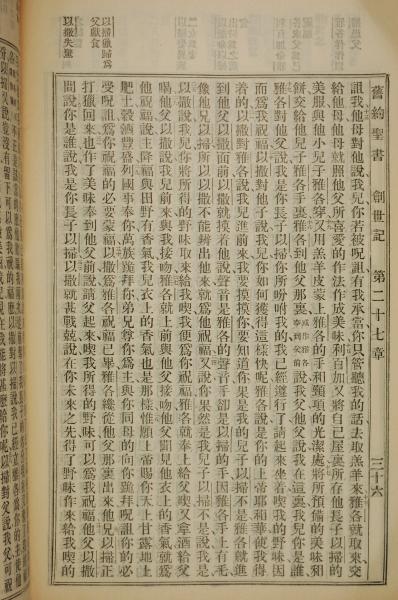 舊約聖書 創世記 第二十七章 三十六
詛我他母對他說我兒你若被呪詛有我承當你只管聽我的話去取羔羊來雅各就取來交
給他母他母就照他父所喜愛的作法作成美味利百加又將自己屋裏所存他長子以掃的
美服與他小兒子雅各穿又用羔羊皮蒙上雅各的手和頸項的光潔處就將所預備的美味和
餅交給他兒子雅各手裏雅各到他父那裏說我父他父說我在這裏我兒你是誰
雅各對他父說我是你長子以掃你所吩咐我的我已經遵行了請起來坐着喫我的野味因
而爲我祝福以撒對他兒子說我兒你如何獲得這樣快呢雅各說是你的上帝耶和華使我得
着的以撒對雅各說我兒進前來我要摸摸你要知道你果是我的兒子以掃不是雅各就進
到他父以撒面前以撒就摸着他說聲音是雅各的聲音手卻是以掃的手因雅各手上有毛
像他兄以掃所以以撒不能辨出他來就爲他祝福又說你果然是我兒子以掃不是說我是
以撒說我兒你將所得的野味取來給我喫我便爲你祝福雅各就奉上給父喫又拿酒給父
喝他父以撒說我兒前來與我接吻雅各就上前與他父接吻他父聞見他衣上的香氣就爲
他祝福說主降福與田野有香氣我兒衣上的香氣也是那樣惟願上帝賜你天上甘露地上
肥土五穀酒豐盛列國事奉你萬族跪拜你弟兄尊你爲主與你同母的向你跪拜呪詛你的必
受呪詛爲你祝福的必要蒙福以撒爲雅各祝福已畢雅各纔從他父那裏出來他兄以掃正
打獵回來也作了美味奉到他父前說請父起來喫我所得的野味可以爲我祝福他父以撒
問說你是誰說我是你長子以掃以撒就甚戰兢說在你未來之先得了野味作來給我喫的
以掃獵歸爲
父獻食
以撒失驚